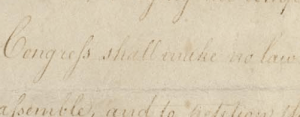 Congreſs shall make no law
aſsemble, and to petition th